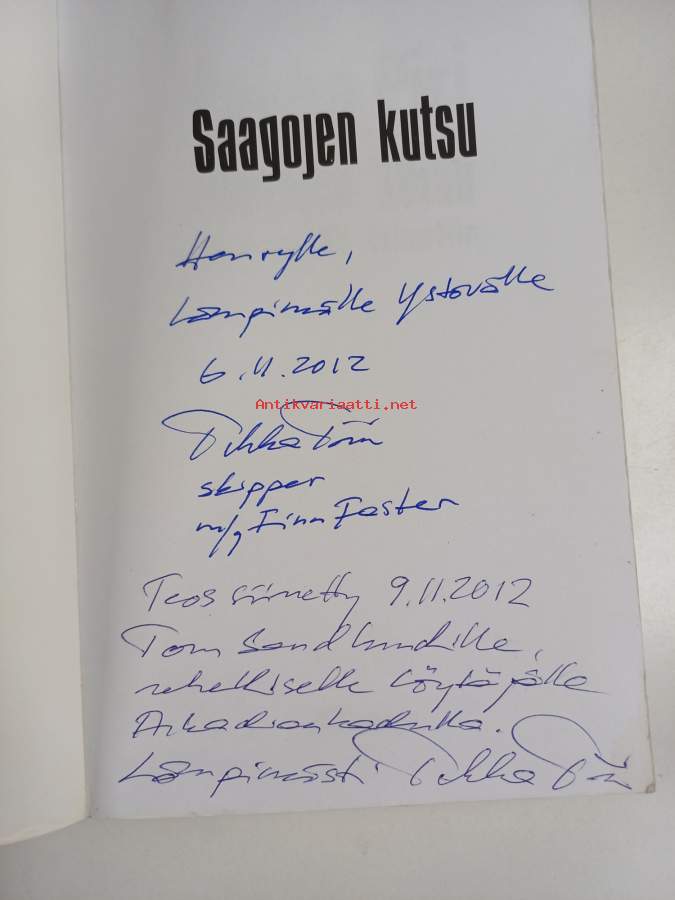 Saagojen kutsu
Henrylle,
Lämpimälle Ystävälle
6.11.2012
Antikvariaatti.net
skipper
m/y Finn Faster
Teos siirretty 9.11.2012
Tom Sandlundille,
rehelliselle löytäjälle
Arkadiankadulla.
Lämpimästi